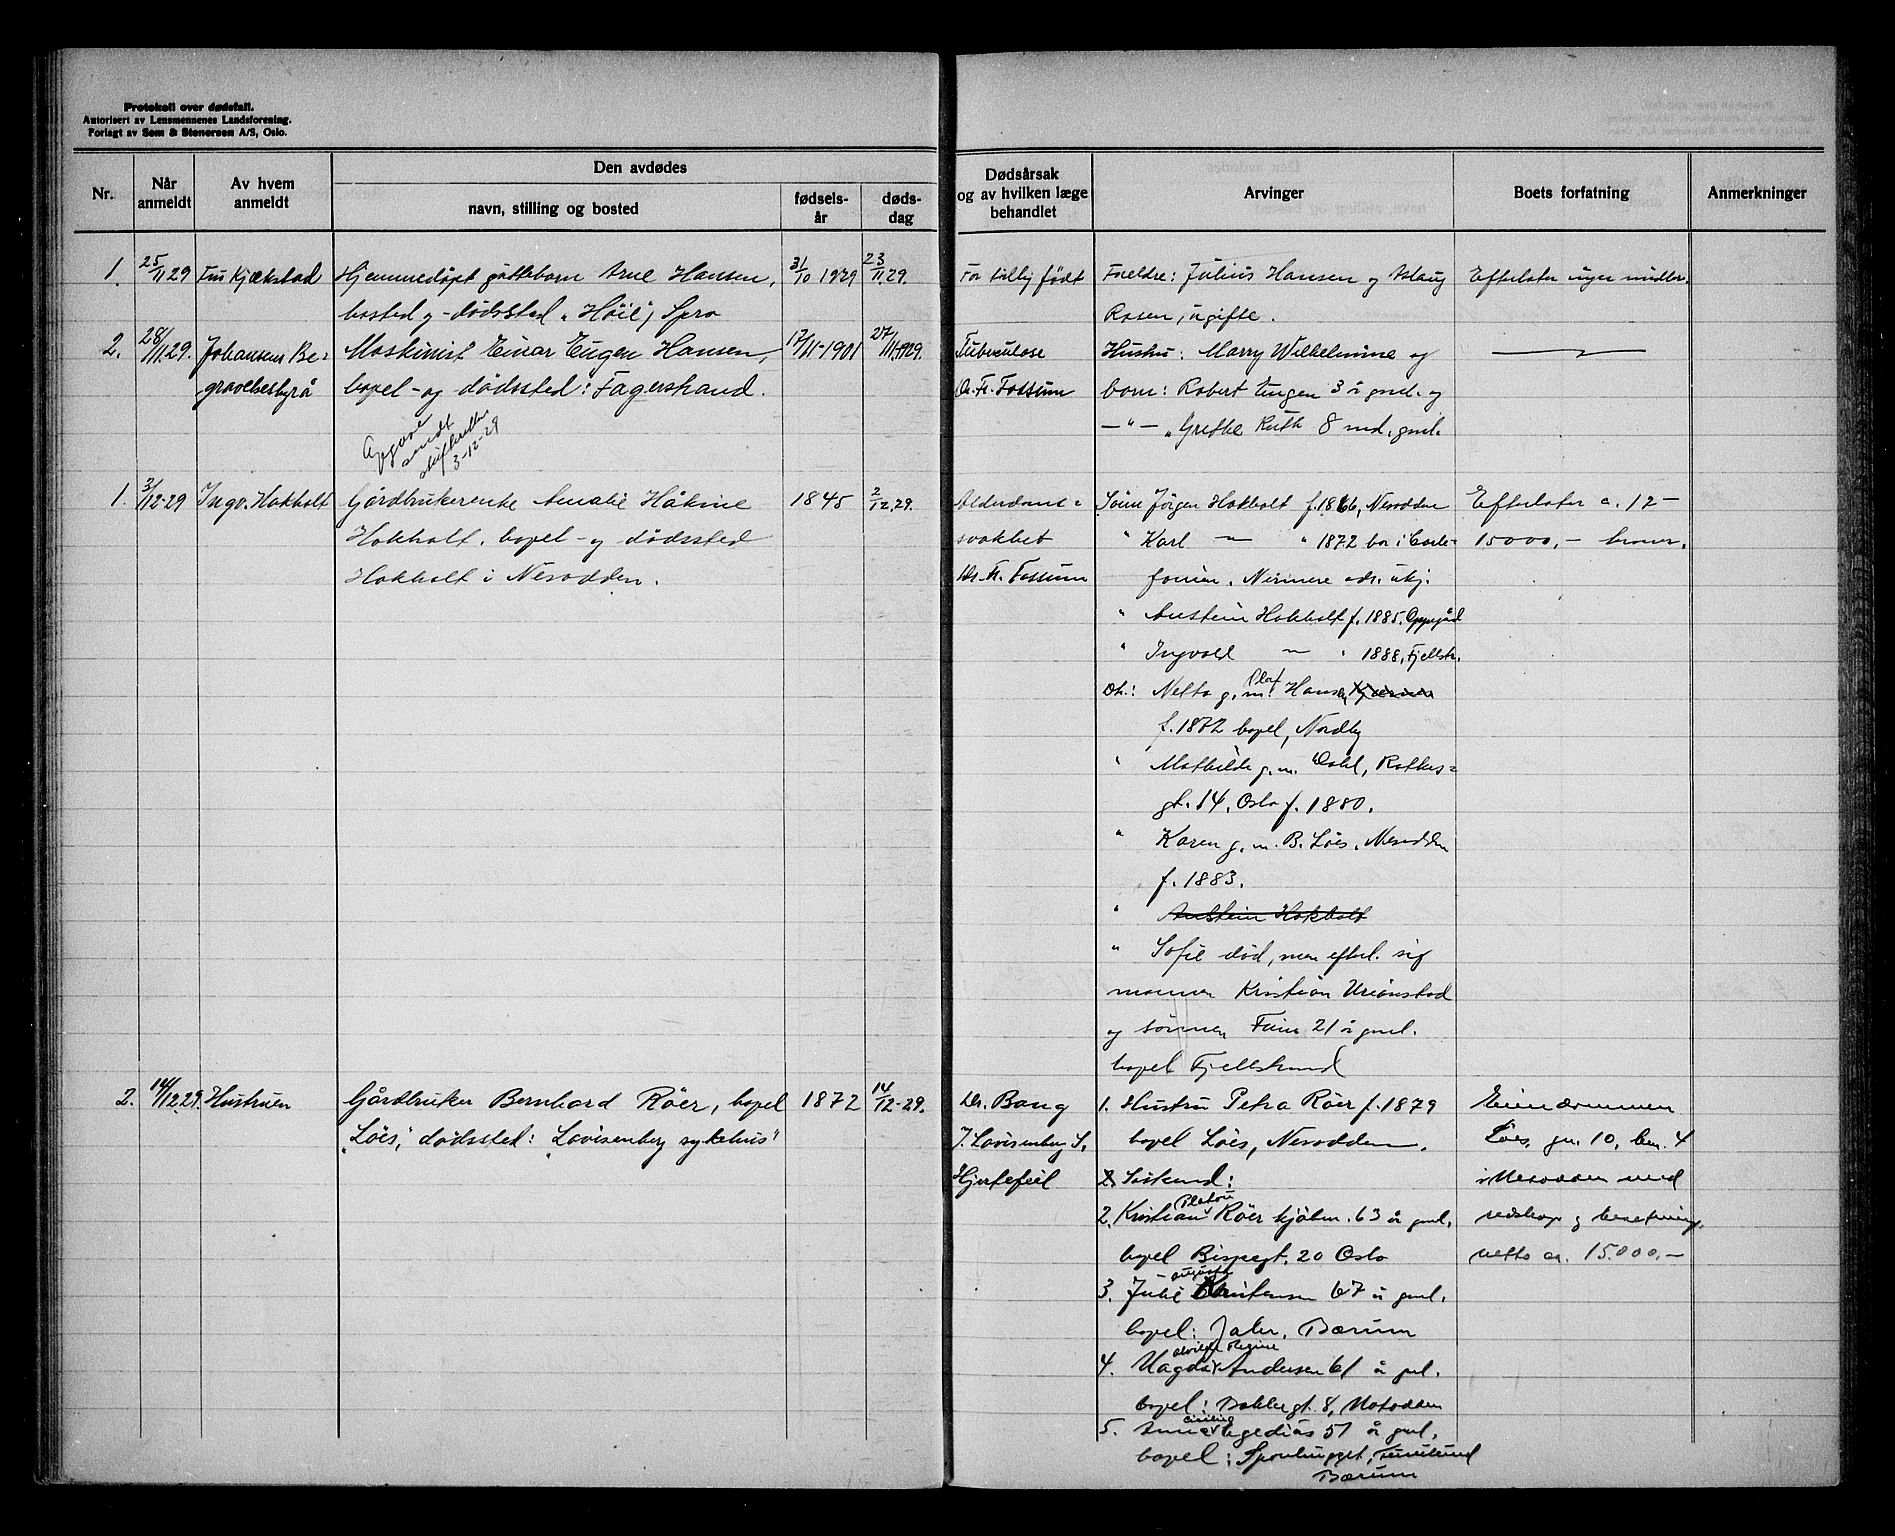 Protokoll over dødsfall.
Autorisert av Lensmennenes Landsforening.
Forlagt av Sem & Stenersen A/S, Oslo.
Nr.
Når anmeldt
Av hvem anmeldt
Den avdødes
navn, stilling og bosted
fødsels-år
døds-dag
Dødsårsak og av hvilken læge behandlet
Arvinger
Boets forfatning
Anmerkninger
1. 25/11 29 Fru Kjækstad Hjemmedøpt gutteborn Arne Hansen, 31/10 1929 23/11. 29. For tidlig født Foreldre: Julius Hansen og Aslaug Efterlater ingen midler.
bosted og dødssted "Høie", Spro Rosen, ugifte.
2. 28/11 29. Johansens Be- Maskinist Einar Eugen Hansen, 17/11-1901 27/11 1929. Tuberculose Hustru: Marry Wilhelmine og
gravebesbyrå bopel- og dødssted: Fagerstrand. Dr. Fr. Fossum born: Robert Eugen 3 år gml. og
Opgave sendt skifteretten 3-12-29
— " — " Grethe Ruth 8 md. gml.
1. 3/12-29 Ingv. Hokholt Gårdbrukerenke Amalie Håkine 1845 2/12. 29. Alderdoms- Sönn Jörgen Hokholt f. 1866, Nesodden Efterlater ca. 12-
Hokholt, bopel- og dødssted svakhet " Karl — " 1872 bor i Carle- 15000,- kroner.
Hokholt i Nesodden. Dr. Fr. Fossum fonien. Nærmere adr. ukj.
" Austein Hokholt f. 1885, Oppegård
" Ingvald — " 1888, Fjellstr.
Dt.: Netta g. m. Olaf Hansen,
f. 1872 bopel, Nordby
" Mathilde g. m. Dahl, Rathes-
gt. 14, Oslo f. 1880.
" Karen g. m. B. Löes, Nesodden
f. 1883.
" Austein Hokholt
" Sofie död, men efterl. sig
mannen Kristian Uriånstad
og sönnen Finn 21 år gml.
bopel Fjellstrand
2. 14/12 29. Hustruen Gårdbruker Bernhard Röer, bopel 1872 14/12-29. Dr. Bang 1. Hustru Petra Röer f. 1879 Eiendommen
"Löes", dødssted: "Lovisenberg sykehus" J. Lovisenberg S. bopel Löes, Nesodden. Löes, gn. 10, bn. 4
Hjertefeil 2. Söskend: i Nesodden med
2. Kristian Platou Röer kjöbm. 63 år gml. redskap og besetning.
bopel Bispegt. 20 Oslo netto ca. 15.000.-
3. Julie Augusta Christensen 67 år gml.
bopel: Jaler, Bærum
4. Magda Regine Andersen 61 år gml.
bopel: gt. 8, Notodden
5. Anna 51 år gml.
bopel:
Bærum